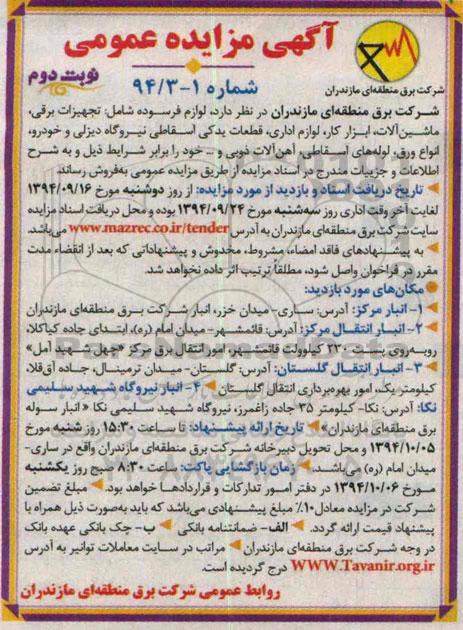 آگهی مزایده عمومی
شماره ۱-۹۴/۳
نوبت دوم
شرکت برق منطقه‌ای مازندران
شرکت برق منطقه‌ای مازندران در نظر دارد، لوازم فرسوده شامل: تجهیزات برقی،
ماشین‌آلات، ابزار کار، لوازم اداری، قطعات یدکی اسقاطی نیروگاه دیزلی و خودرو،
انواع ورق، لوله‌های اسقاطی، آهن‌آلات ذوبی و ... خود را برابر شرایط ذیل و به شرح
اطلاعات و جزییات مندرج در اسناد مزایده از طریق مزایده عمومی به‌فروش رساند.
تاریخ دریافت اسناد و بازدید از مورد مزایده: از روز دوشنبه مورخ ۱۳۹۴/۰۹/۱۶
لغایت آخر وقت اداری روز سه‌شنبه مورخ ۱۳۹۴/۰۹/۲۴ بوده و محل دریافت اسناد مزایده
سایت شرکت برق منطقه‌ای مازندران به آدرس www.mazrec.co.ir/tender می‌باشد.
به پیشنهادهای فاقد امضاء، مشروط، مخدوش و پیشنهاداتی که بعد از انقضاء مدت
مقرر در فراخوان واصل شود، مطلقاً ترتیب اثر داده نخواهد شد.
مکان‌های مورد بازدید:
۱- انبار مرکز: آدرس: ساری-میدان خزر، انبار شرکت برق منطقه‌ای مازندران
۲- انبار انتقال مرکز: آدرس: قائمشهر- میدان امام (ره)، ابتدای جاده کیاکلا،
روبه‌روی پست ۲۳۰ کیلوولت قائمشهر، امور انتقال برق مرکز «چهل شهید آمل»
۳- انبار انتقال گلستان: آدرس: گلستان- میدان ترمینال، جاده آق‌قلا،
کیلومتر یک، امور بهره‌برداری انتقال گلستان ۴- انبار نیروگاه شهید سلیمی
نکا: آدرس: نکا- کیلومتر ۳۵ جاده زاغمرز، نیروگاه شهید سلیمی نکا « انبار سوله
برق منطقه‌ای مازندران» تاریخ ارائه پیشنهاد: تا ساعت ۱۵:۳۰ روز شنبه مورخ
۱۳۹۴/۱۰/۰۵ و محل تحویل دبیرخانه شرکت برق منطقه‌ای مازندران واقع در ساری-
میدان امام (ره) می‌باشد. زمان بازگشایی پاکت: ساعت ۸:۳۰ صبح روز یکشنبه
مورخ ۱۳۹۴/۱۰/۰۶ در دفتر امور تدارکات و قراردادها خواهد بود. مبلغ تضمین
شرکت در مزایده معادل ۱۰٪ مبلغ پیشنهادی می‌باشد که باید به‌صورت ذیل همراه با
پیشنهاد قیمت ارائه گردد. الف- ضمانتنامه بانکی ب- چک بانکی عهده بانک
در وجه شرکت برق منطقه‌ای مازندران مراتب در سایت معاملات توانیر به آدرس
WWW.Tavanir.org.ir درج گردیده است.
روابط عمومی شرکت برق منطقه‌ای مازندران